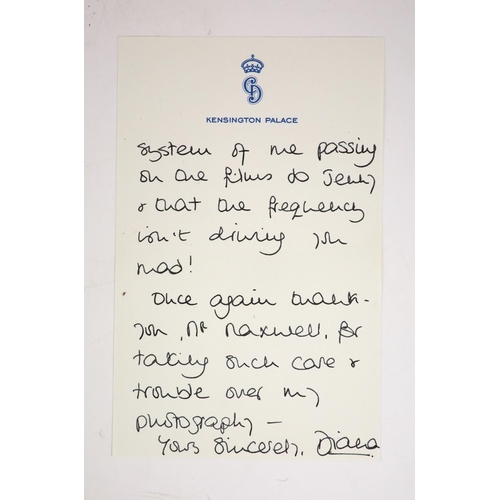 CD
KENSINGTON PALACE
system of me passing
on the films to Jenny
& that the frequency
isn't driving you
mad!
Once again thank-
you, Mr Maxwell, for
taking such care &
trouble over my
photography –
Yours sincerely, Diana